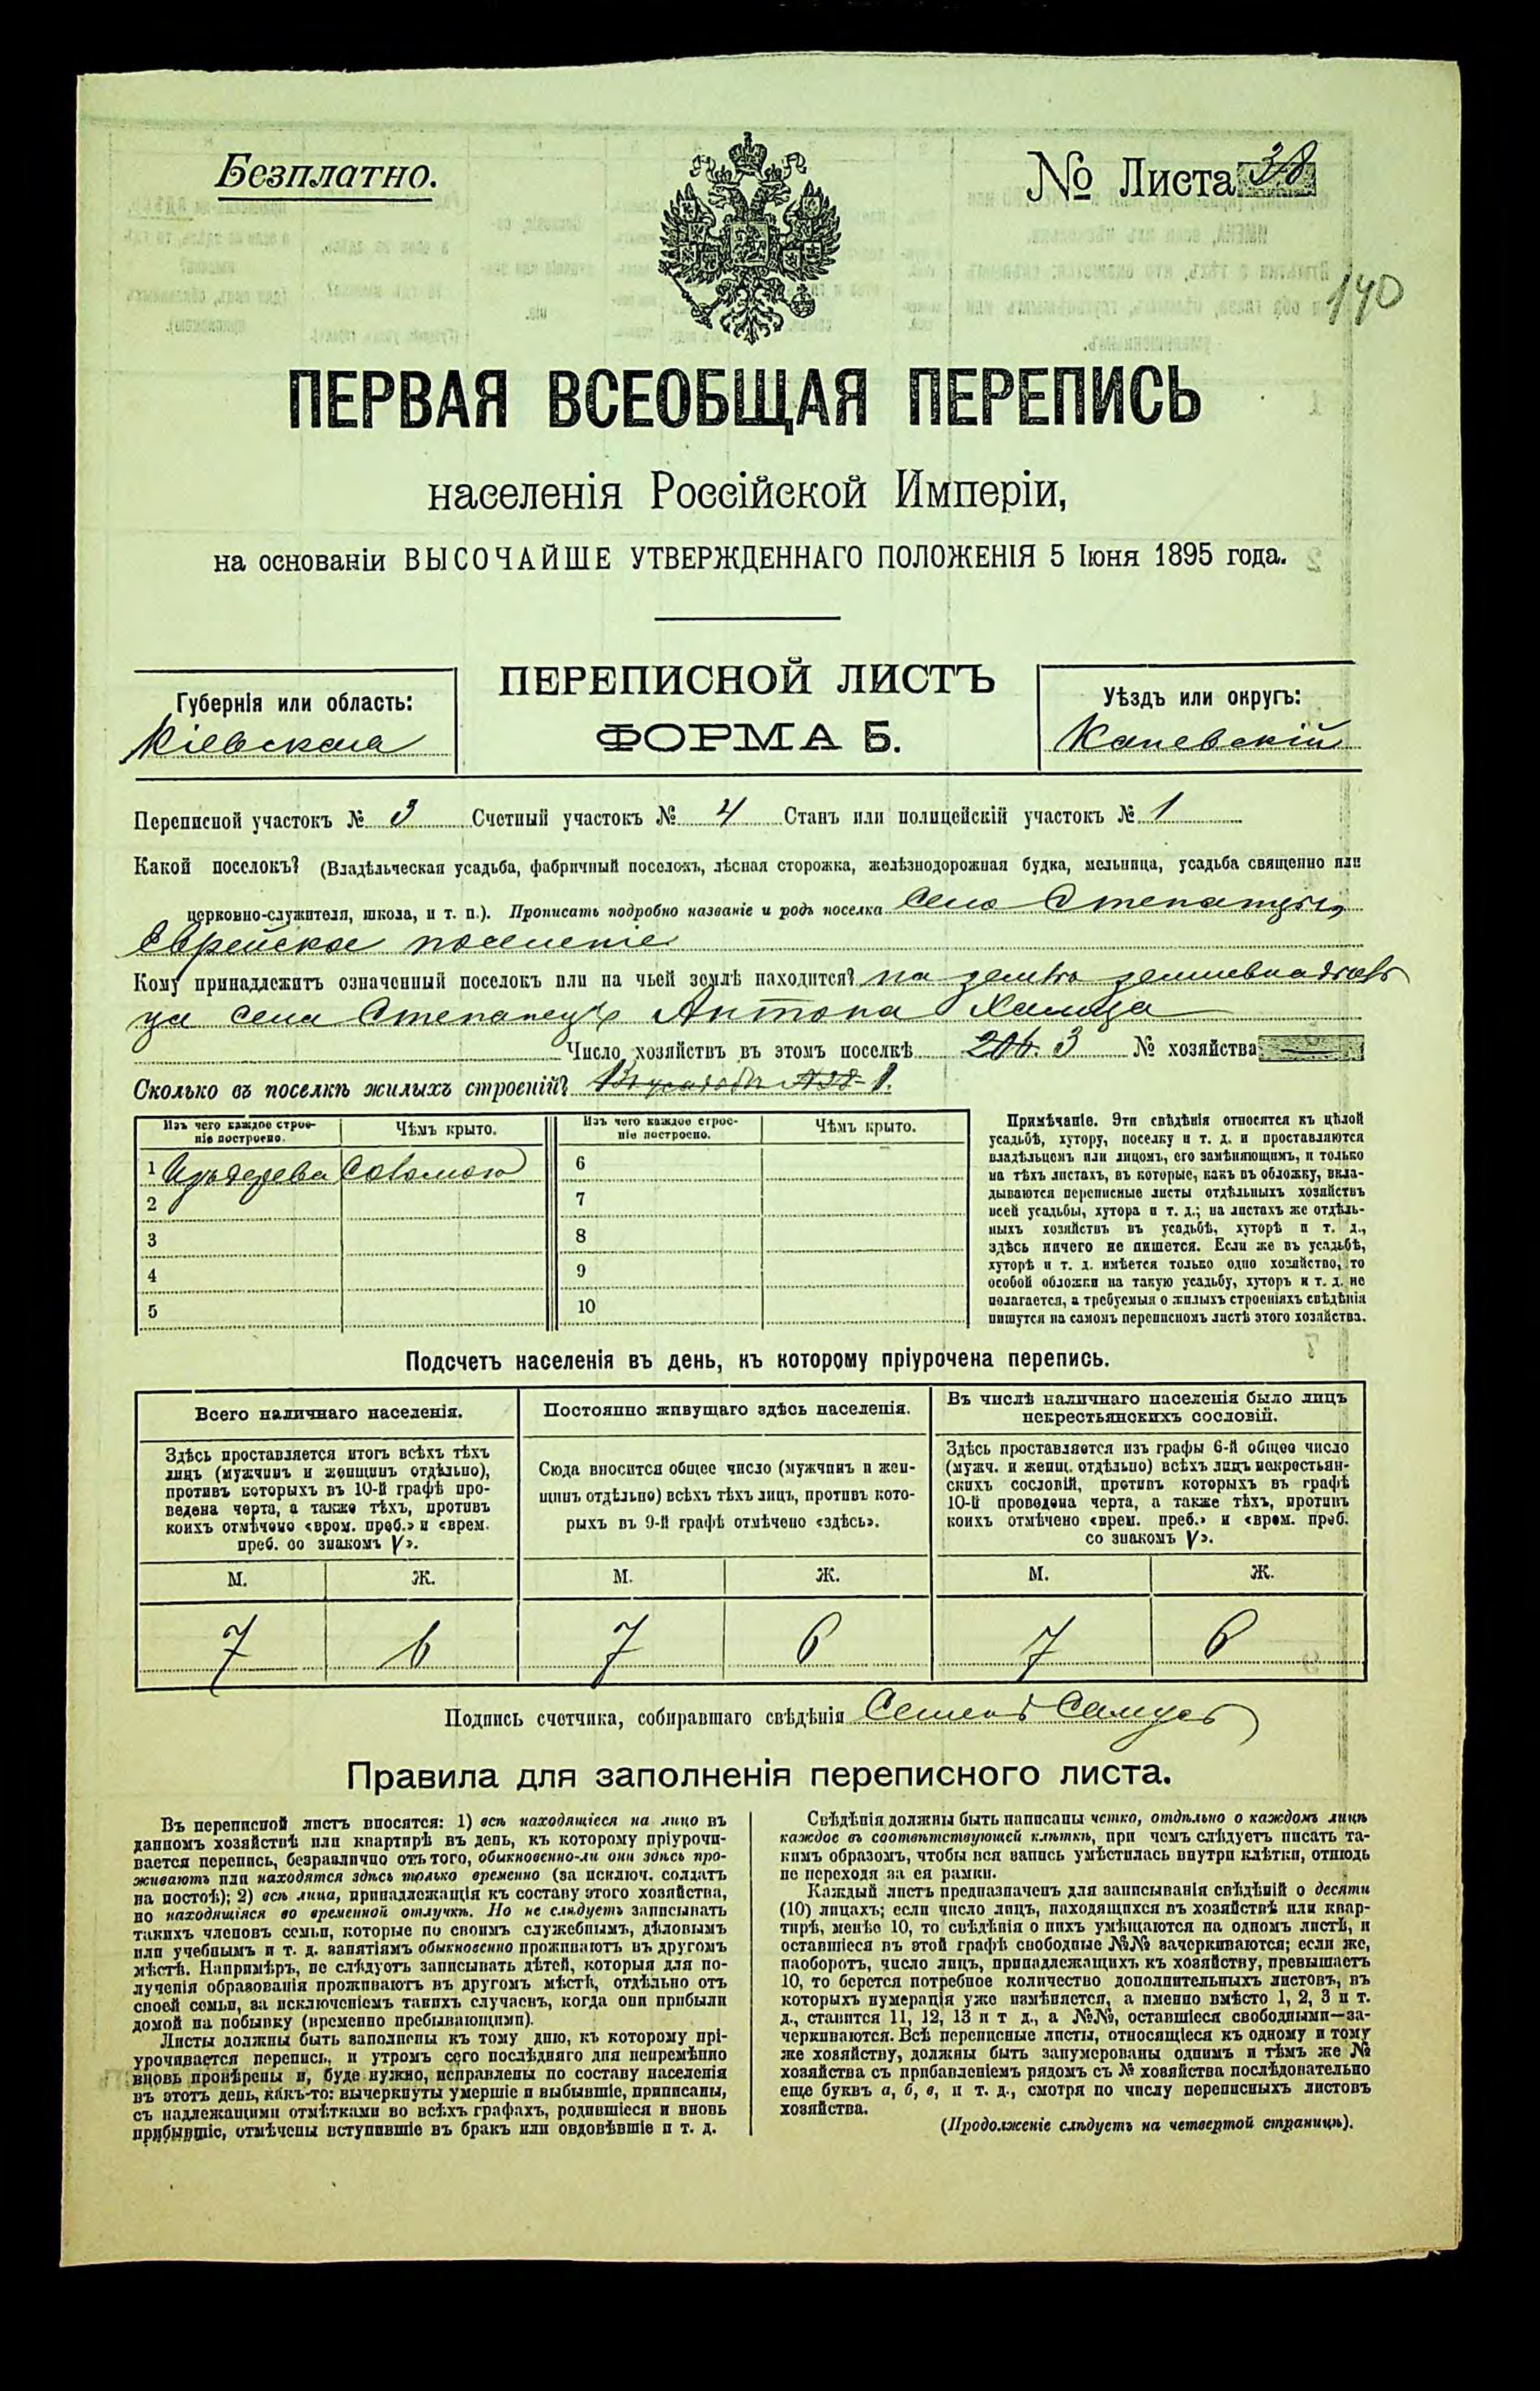 Безплатно.
№ Листа 38
140
ПЕРВАЯ ВСЕОБЩАЯ ПЕРЕПИСЬ
населенія Россійской Имперіи,
на основаніи ВЫСОЧАЙШЕ УТВЕРЖДЕННАГО ПОЛОЖЕНІЯ 5 Іюня 1895 года.
Губернія или область:
Кіевская
ПЕРЕПИСНОЙ ЛИСТЪ
ФОРМА Б.
Уѣздъ или округъ:
Каневскій
Переписной участокъ № 3 Счетный участокъ № 4 Станъ или полицейскій участокъ № 1
Какой поселокъ? (Владѣльческая усадьба, фабричный поселокъ, лѣсная сторожка, желѣзнодорожная будка, мельница, усадьба священно или
церковно-служителя, школа, и т. п.). Прописать подробно названіе и родъ поселка село Степанцы,
Еврейское поселеніе
Кому принадлежитъ означенный поселокъ или на чьей землѣ находится? на землѣ землевладѣль
ца села Степанецъ Антона
Число хозяйствъ въ этомъ поселкѣ 3 № хозяйства
Сколько въ поселкѣ жилыхъ строеній? 1.
Изъ чего каждое строеніе построено.
Чѣмъ крыто.
Изъ чего каждое строеніе построено.
Чѣмъ крыто.
1 Изъ дерева Соломою
2
3
4
5
6
7
8
9
10
Примѣчаніе. Эти свѣдѣнія относятся къ цѣлой
усадьбѣ, хутору, поселку и т. д. и проставляются
владѣльцемъ или лицомъ, его замѣняющимъ, и только
на тѣхъ листахъ, въ которые, какъ въ обложку, вкла-
дываются переписные листы отдѣльныхъ хозяйствъ
всей усадьбы, хутора и т. д.; на листахъ же отдѣль-
ныхъ хозяйствъ въ усадьбѣ, хуторѣ и т. д.,
здѣсь ничего не пишется. Если же въ усадьбѣ,
хуторѣ и т. д. имѣется только одно хозяйство, то
особой обложки на такую усадьбу, хуторъ и т. д. не
полагается, а требуемыя о жилыхъ строеніяхъ свѣдѣнія
пишутся на самомъ переписномъ листѣ этого хозяйства.
Подсчетъ населенія въ день, къ которому пріурочена перепись.
Всего наличнаго населенія.
Здѣсь проставляется итогъ всѣхъ тѣхъ
лицъ (мужчинъ и женщинъ отдѣльно),
противъ которыхъ въ 10-й графѣ про-
ведена черта, а также тѣхъ, противъ
коихъ отмѣчено «врем. преб.» и «врем.
преб. со знакомъ V».
Постоянно живущаго здѣсь населенія.
Сюда вносится общее число (мужчинъ и жен-
щинъ отдѣльно) всѣхъ тѣхъ лицъ, противъ кото-
рыхъ въ 9-й графѣ отмѣчено «здѣсь».
Въ числѣ наличнаго населенія было лицъ
некрестьянскихъ сословій.
Здѣсь проставляется изъ графы 6-й общее число
(мужч. и женщ. отдѣльно) всѣхъ лицъ некрестьян-
скихъ сословій, противъ которыхъ въ графѣ
10-й проведена черта, а также тѣхъ, противъ
коихъ отмѣчено «врем. преб.» и «врем. преб.
со знакомъ V».
М. Ж. М. Ж. М. Ж.
7 6 7 6 7 6
Подпись счетчика, собиравшаго свѣдѣнія Семенъ Самусь
Правила для заполненія переписного листа.
Въ переписной листъ вносятся: 1) всѣ находящіеся на лицо въ
данномъ хозяйствѣ или квартирѣ въ день, къ которому пріурочи-
вается перепись, безразлично отъ того, обыкновенно-ли они здѣсь про-
живаютъ или находятся здѣсь только временно (за исключ. солдатъ
на постоѣ); 2) всѣ лица, принадлежащія къ составу этого хозяйства,
но находящіяся во временной отлучкѣ. Но не слѣдуетъ записывать
такихъ членовъ семьи, которые по своимъ служебнымъ, дѣловымъ
или учебнымъ и т. д. занятіямъ обыкновенно проживаютъ въ другомъ
мѣстѣ. Напримѣръ, не слѣдуетъ записывать дѣтей, которыя для по-
лученія образованія проживаютъ въ другомъ мѣстѣ, отдѣльно отъ
своей семьи, за исключеніемъ такихъ случаевъ, когда они прибыли
домой на побывку (временно пребывающими).
Листы должны быть заполнены къ тому дню, къ которому прі-
урочивается перепись, и утромъ сего послѣдняго дня непремѣнно
вновь провѣрены и, буде нужно, исправлены по составу населенія
въ этотъ день, какъ-то: вычеркнуты умершіе и выбывшіе, приписаны,
съ надлежащими отмѣтками во всѣхъ графахъ, родившіеся и вновь
прибывшіе, отмѣчены вступившіе въ бракъ или овдовѣвшіе и т. д.
Свѣдѣнія должны быть написаны четко, отдѣльно о каждомъ лицѣ
каждое въ соотвѣтствующей клѣткѣ, при чемъ слѣдуетъ писать та-
кимъ образомъ, чтобы вся запись умѣстилась внутри клѣтки, отнюдь
не переходя за ея рамки.
Каждый листъ предназначенъ для записыванія свѣдѣній о десяти
(10) лицахъ; если число лицъ, находящихся въ хозяйствѣ или квар-
тирѣ, менѣе 10, то свѣдѣнія о нихъ умѣщаются на одномъ листѣ, и
оставшіеся въ этой графѣ свободные №№ зачеркиваются; если же,
наоборотъ, число лицъ, принадлежащихъ къ хозяйству, превышаетъ
10, то берется потребное количество дополнительныхъ листовъ, въ
которыхъ нумерація уже измѣняется, а именно вмѣсто 1, 2, 3 и т.
д., ставится 11, 12, 13 и т д., а №№, оставшіеся свободными—за-
черкиваются. Всѣ переписные листы, относящіеся къ одному и тому
же хозяйству, должны быть занумерованы однимъ и тѣмъ же №
хозяйства съ прибавленіемъ рядомъ съ № хозяйства послѣдовательно
еще буквъ а, б, в, и т. д., смотря по числу переписныхъ листовъ
хозяйства.
(Продолженіе слѣдуетъ на четвертой страницѣ).